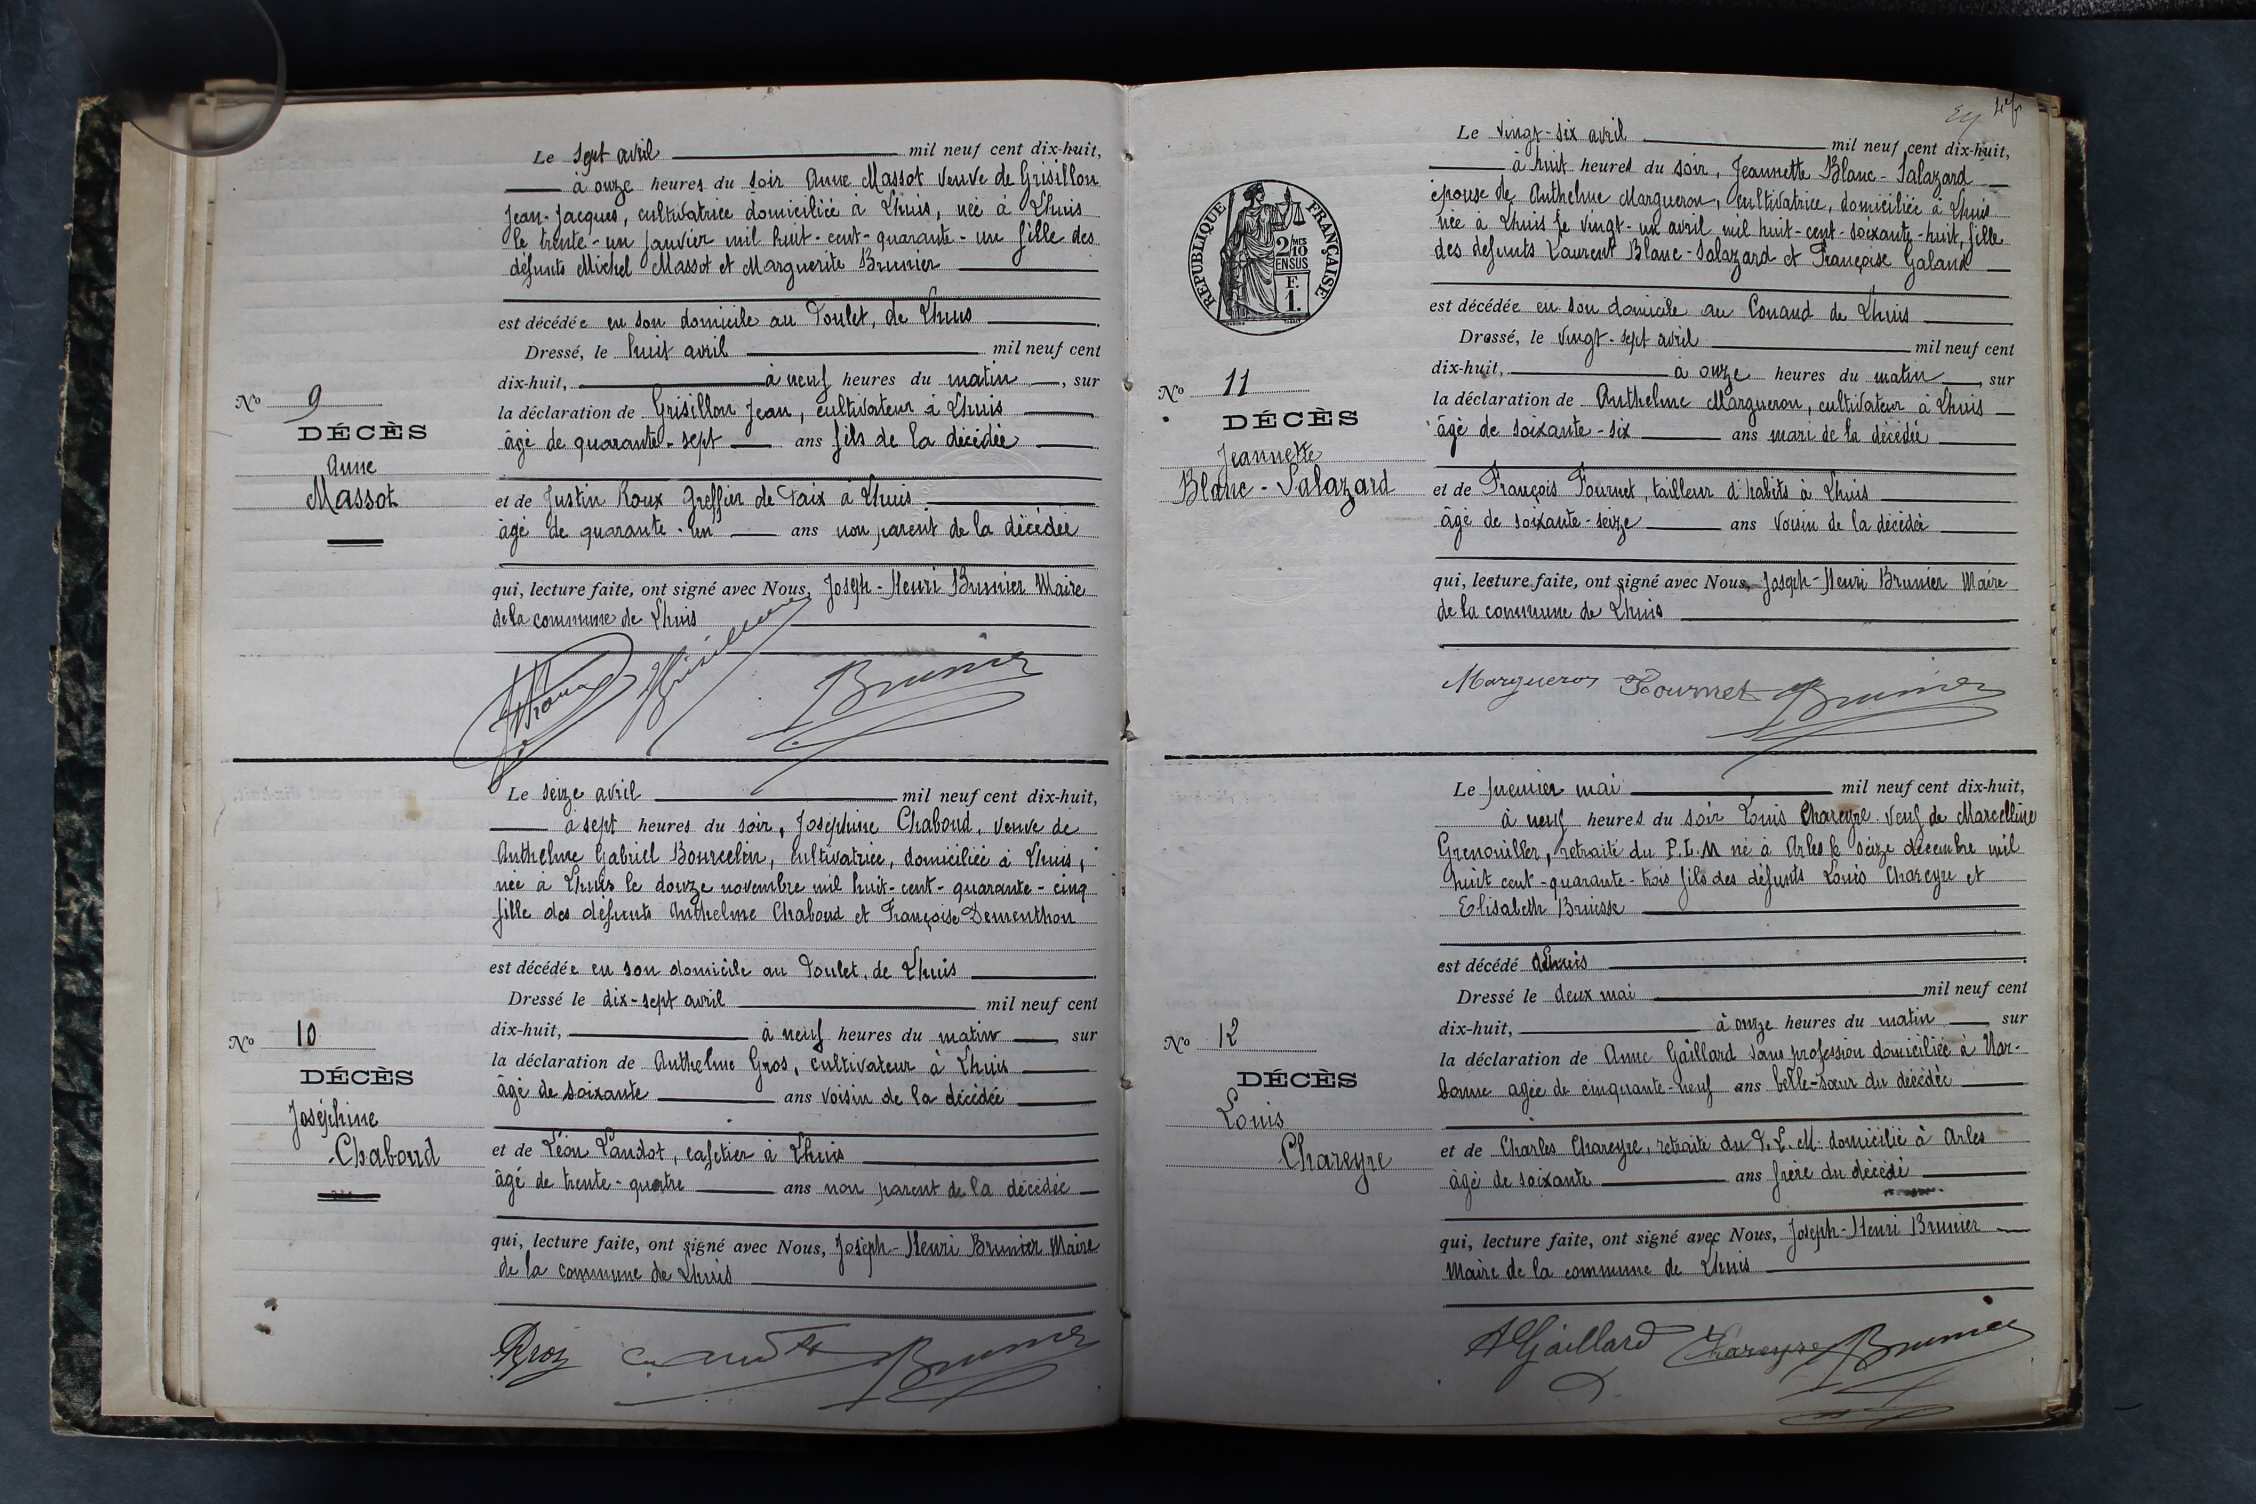 Le sept avril mil neuf cent dix-huit,
à onze heures du soir Anne Massot veuve de Grisillon
Jean-Jacques, cultivatrice domiciliée à Lhuis, née à Lhuis
le trente-un janvier mil huit-cent-quarante-un fille des
défunts Michel Massot et Marguerite Brunier
est décédée en son domicile au Poulet, de Lhuis
Dressé, le huit avril mil neuf cent
dix-huit, à neuf heures du matin, sur
la déclaration de Grisillon Jean, cultivateur à Lhuis
âgé de quarante-sept ans fils de la décédée
et de Justin Roux Greffier de Paix à Lhuis
âgé de quarante-un ans non parent de la décédée
qui, lecture faite, ont signé avec Nous, Joseph-Henri Brunier Maire
de la commune de Lhuis
No 9
DÉCÈS
Anne
Massot
Grisillon Brunier
Le seize avril mil neuf cent dix-huit,
à sept heures du soir, Joséphine Chaboud, veuve de
Anthelme Gabriel Bourcelin, cultivatrice, domiciliée à Lhuis,
née à Lhuis le douze novembre mil huit-cent-quarante-cinq
fille des défunts Anthelme Chaboud et Françoise Dementhon
est décédée en son domicile au Poulet, de Lhuis
Dressé le dix-sept avril mil neuf cent
dix-huit, à neuf heures du matin, sur
la déclaration de Anthelme Gros, cultivateur à Lhuis
âgé de soixante ans voisin de la décédée
et de Léon Caudot, cafetier à Lhuis
âgé de trente-quatre ans non parent de la décédée
qui, lecture faite, ont signé avec Nous, Joseph-Henri Brunier Maire
de la commune de Lhuis
No 10
DÉCÈS
Joséphine
Chaboud
Brunier
Le vingt-six avril mil neuf cent dix-huit,
à huit heures du soir, Jeannette Blanc-Salazard
épouse de Anthelme Margueron, cultivatrice, domiciliée à Lhuis
née à Lhuis le vingt-un avril mil huit-cent-soixante-huit, fille
des défunts Laurent Blanc-Salazard et Françoise Galand
est décédée en son domicile au Conand de Lhuis
Dressé, le vingt-sept avril mil neuf cent
dix-huit, à onze heures du matin, sur
la déclaration de Anthelme Margueron, cultivateur à Lhuis
âgé de soixante-six ans mari de la décédée
et de François Fournet, tailleur d'habits à Lhuis
âgé de soixante-seize ans voisin de la décédée
qui, lecture faite, ont signé avec Nous, Joseph-Henri Brunier Maire
de la commune de Lhuis
RÉPUBLIQUE FRANÇAISE
2/10 MES
EN SUS
F.
1.
No 11
DÉCÈS
Jeannette
Blanc-Salazard
Margueron Fournet Brunier
Le premier mai mil neuf cent dix-huit,
à neuf heures du soir Louis Chareyre veuf de Marcelline
Grenouiller, retraité du P.L.M né à Arles le seize décembre mil
huit cent-quarante-trois fils des défunts Louis Chareyre et
Elisabeth Bruisse
est décédé à Lhuis
Dressé le deux mai mil neuf cent
dix-huit, à onze heures du matin, sur
la déclaration de Anne Gaillard sans profession domiciliée à Nar-
bonne agée de cinquante-neuf ans belle-sœur du décédé
et de Charles Chareyre, retraité du P.L.M. domicilié à Arles
âgé de soixante ans frère du décédé
qui, lecture faite, ont signé avec Nous, Joseph-Henri Brunier
Maire de la commune de Lhuis
No 12
DÉCÈS
Louis
Chareyre
A Gaillard Chareyre Brunier